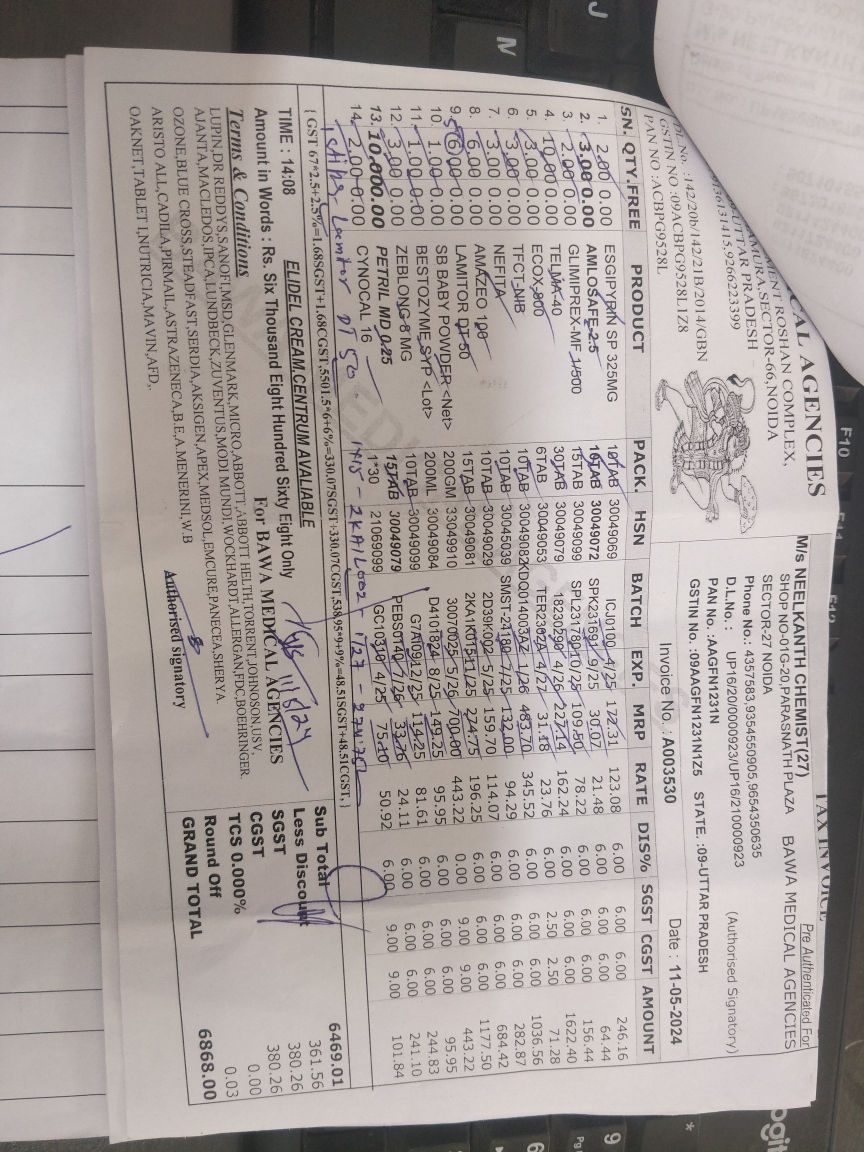 TAX INVOICE
Pre Authenticated For
BAWA MEDICAL AGENCIES
(Authorised Signatory)
CAL AGENCIES
MENT ROSHAN COMPLEX,
AMURA,SECTOR-66,NOIDA
UTTAR PRADESH
9266223399
D.L.No. :142/20b/142/21B/2014/GBN
GSTIN NO :09ACBPG9528L1Z8
PAN NO :ACBPG9528L
M/s NEELKANTH CHEMIST(27)
SHOP NO-01G-20,PARASNATH PLAZA
SECTOR-27 NOIDA
Phone No.: 4357583,9354550905,9654350635
D.L.No. : UP16/20/0000923/UP16/210000923
PAN No. :AAGFN1231N
GSTIN No. :09AAGFN1231N1Z5 STATE. :09-UTTAR PRADESH
Invoice No. : A003530 Date : 11-05-2024
SN. QTY.FREE PRODUCT PACK. HSN BATCH EXP. MRP RATE DIS% SGST CGST AMOUNT
1. 2.00 0.00 ESGIPYRIN SP 325MG 10TAB 30049069 ICJ0109 4/25 172.31 123.08 6.00 6.00 6.00 246.16
2. 3.00 0.00 AMLOSAFE-2.5 10TAB 30049072 SPK231691 9/25 30.07 21.48 6.00 6.00 6.00 64.44
3. 2.00 0.00 GLIMIPREX-MF 1/500 15TAB 30049099 SPL231780 10/25 109.50 78.22 6.00 6.00 6.00 156.44
4. 10.00 0.00 TELMA-40 30TAB 30049079 18230290 4/26 227.14 162.24 6.00 6.00 6.00 1622.40
5. 3.00 0.00 ECOX-800 6TAB 30049053 TER2302A 4/27 31.18 23.76 6.00 2.50 2.50 71.28
6. 3.00 0.00 TFCT-NIB 10TAB 30049082 KDO014003AZ 1/26 483.70 345.52 6.00 6.00 6.00 1036.56
7. 3.00 0.00 NEFITA 10TAB 30045039 SMST-24180 7/25 132.00 94.29 6.00 6.00 6.00 282.87
8. 6.00 0.00 AMAZEO 100 10TAB 30049029 2D39K002 5/26 159.70 114.07 6.00 6.00 6.00 684.42
9. 6.00 0.00 LAMITOR DT 50 15TAB 30049081 2KA1K015 11/25 274.75 196.25 6.00 6.00 6.00 1177.50
10. 1.00 0.00 SB BABY POWDER <Net> 200GM 33049910 30070025 5/26 700.00 443.22 0.00 9.00 9.00 443.22
11. 1.00 0.00 BESTOZYME SYP <Lot> 200ML 30049084 D4101824 8/25 149.25 95.95 6.00 6.00 6.00 95.95
12. 3.00 0.00 ZEBLONG-8 MG 10TAB 30049099 G7AI009 12/25 114.25 81.61 6.00 6.00 6.00 244.83
13. 10.00 0.00 PETRIL MD 0.25 15TAB 30049079 PEBS0140 7/26 33.76 24.11 6.00 6.00 6.00 241.10
14. 2.00 0.00 CYNOCAL 16 1*30 21069099 GC10310 4/25 75.10 50.92 6.00 9.00 9.00 101.84
Lamitor DT 50 1X15 - 2KA1L002 - 1/27 - 274.75
( GST 67*2.5+2.5%=1.68SGST+1.68CGST,5501.5*6+6%=330.07SGST+330.07CGST,538.95*9+9%=48.51SGST+48.51CGST,)
ELIDEL CREAM,CENTRUM AVALIABLE
TIME : 14:08
Amount in Words : Rs. Six Thousand Eight Hundred Sixty Eight Only
Terms & Conditions
For BAWA MEDICAL AGENCIES
LUPIN,DR REDDYS,SANOFI,MSD,GLENMARK,MICRO,ABBOTT,ABBOTT HELTH,TORRENT,JOHNOSON,USV,
AJANTA,MACLEDOS,IPCA,LUNDBECK,ZUVENTUS,MODI MUNDI,WOCKHARDT,ALLERGAN,FDC,BOEHRINGER.
OZONE,BLUE CROSS,STEADFAST,SERDIA,AKSIGEN,APEX,MEDSOL,EMCURE,PANECEA,SHERYA
ARISTO ALL,CADILA,PIRMAIL,ASTRAZENECA,B.E,A.MENERINI,W.B
OAKNET,TABLET I,NUTRICIA,MAVIN,AFD,.
Authorised signatory
11/5/24
Sub Total 6469.01
Less Discount 361.56
SGST 380.26
CGST 380.26
TCS 0.000% 0.00
Round Off 0.03
GRAND TOTAL 6868.00
F10
J
N
9
6
PgU
*